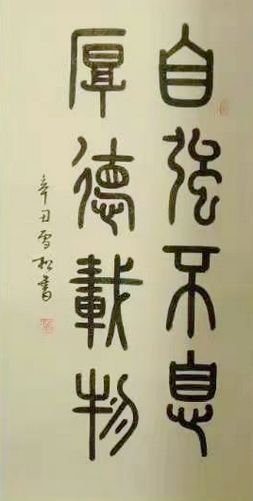 自強不息
厚德載物
辛丑雪松書